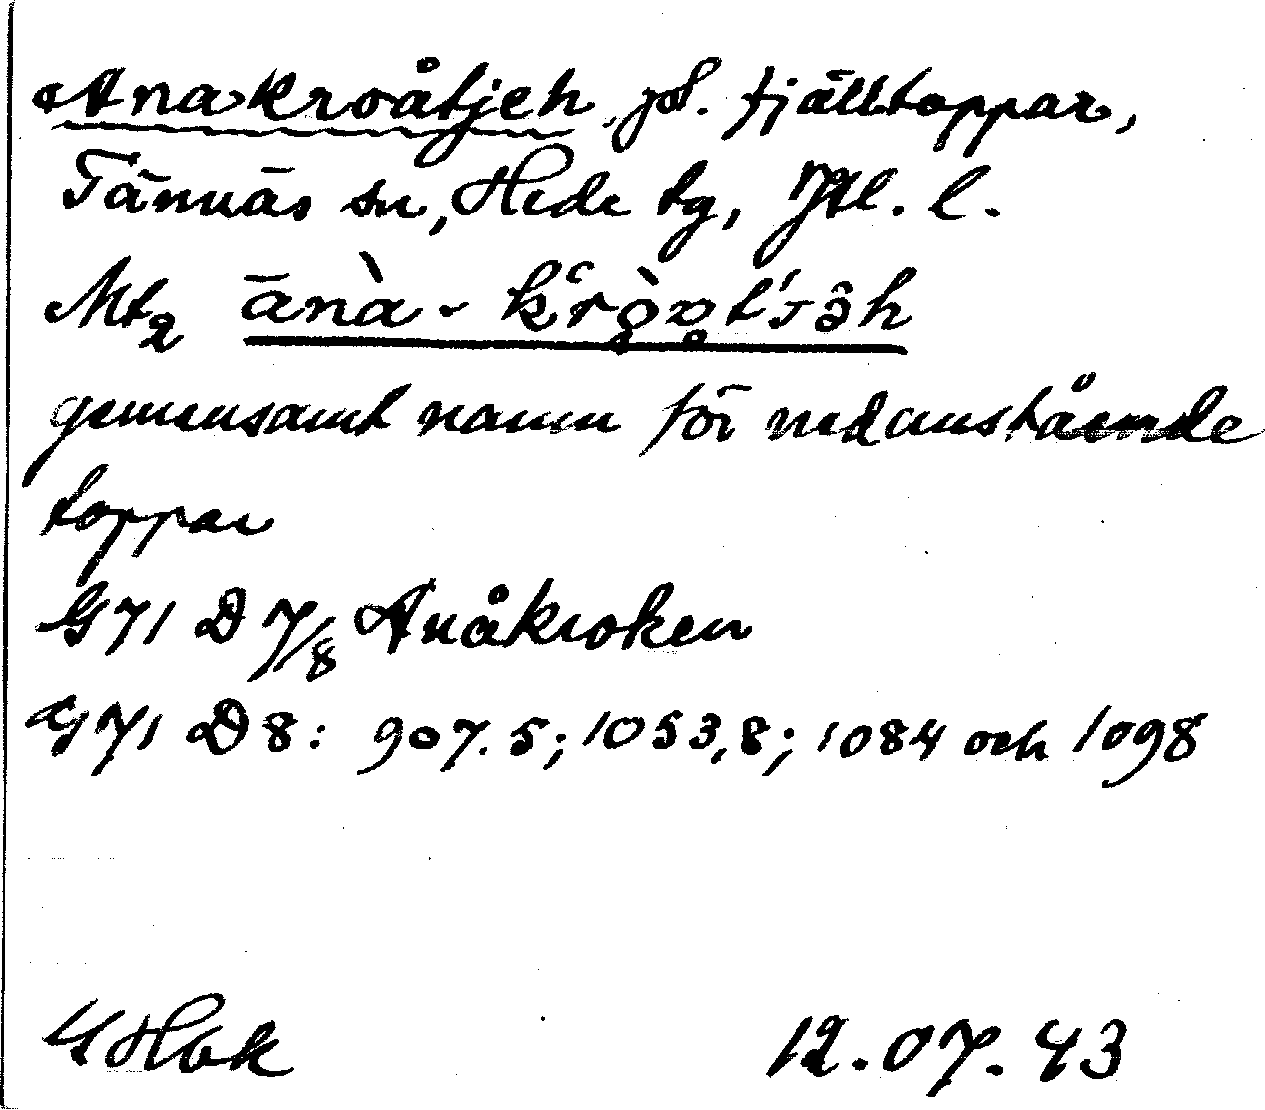 Anakroåtjeh, pl. fjälltoppar,
Tännäs sn, Hede tg, Jtl. l.
Mt2 ānà - k̔rò̥o̥t'sâh
gemensamt namn för nedanstående
toppar
G71 D 7/8 Anåkroken
G 71 D8: 907.5; 1053,8; 1084 och 1098
G Hok
12.07.43